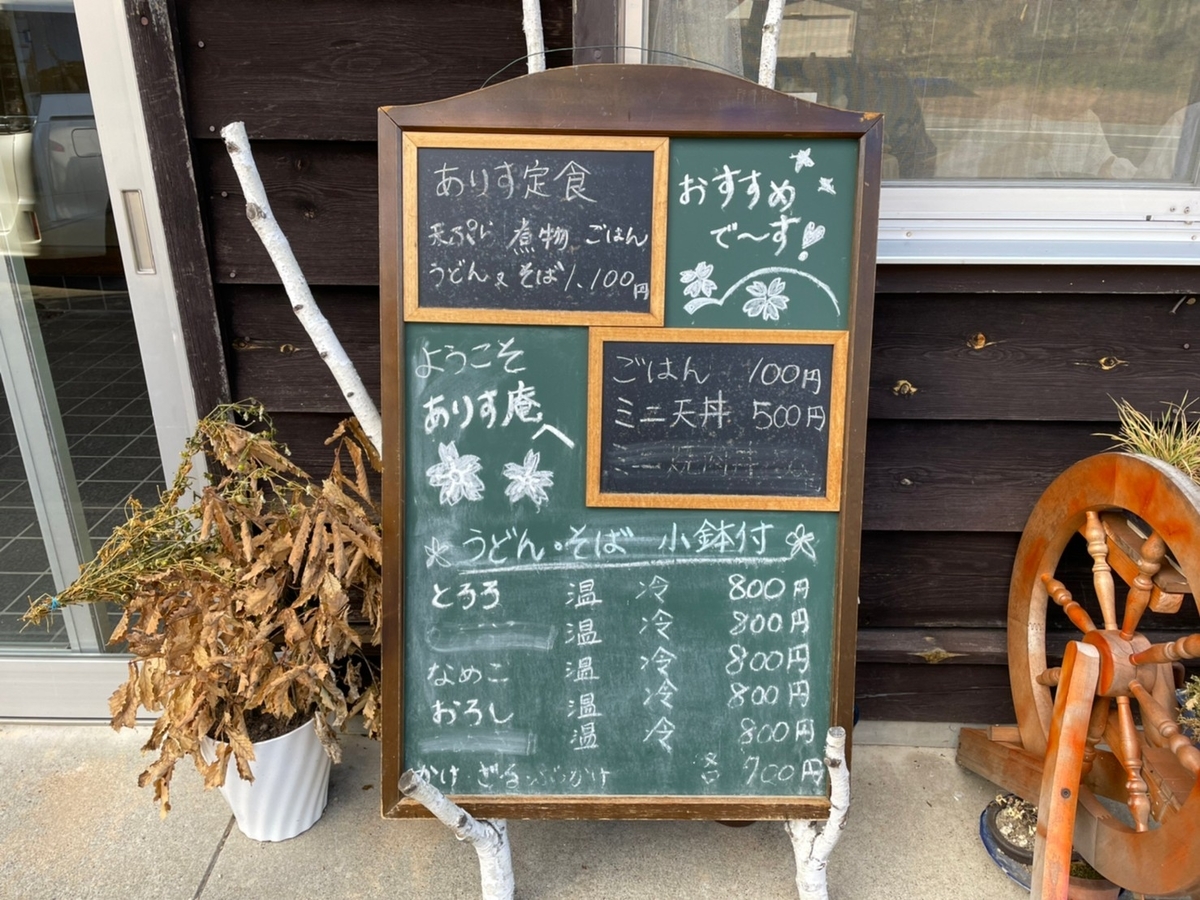 ありす定食
天ぷら 煮物 ごはん
うどん又そば 1,100円
おすすめ
で〜す!
ようこそ
ありす庵へ
ごはん 100円
ミニ天丼 500円
うどん・そば 小鉢付
とろろ 温 冷 800円
温 冷 800円
なめこ 温 冷 800円
おろし 温 冷 800円
温 冷 800円
かけ・ざる・ぶっかけ 各 700円